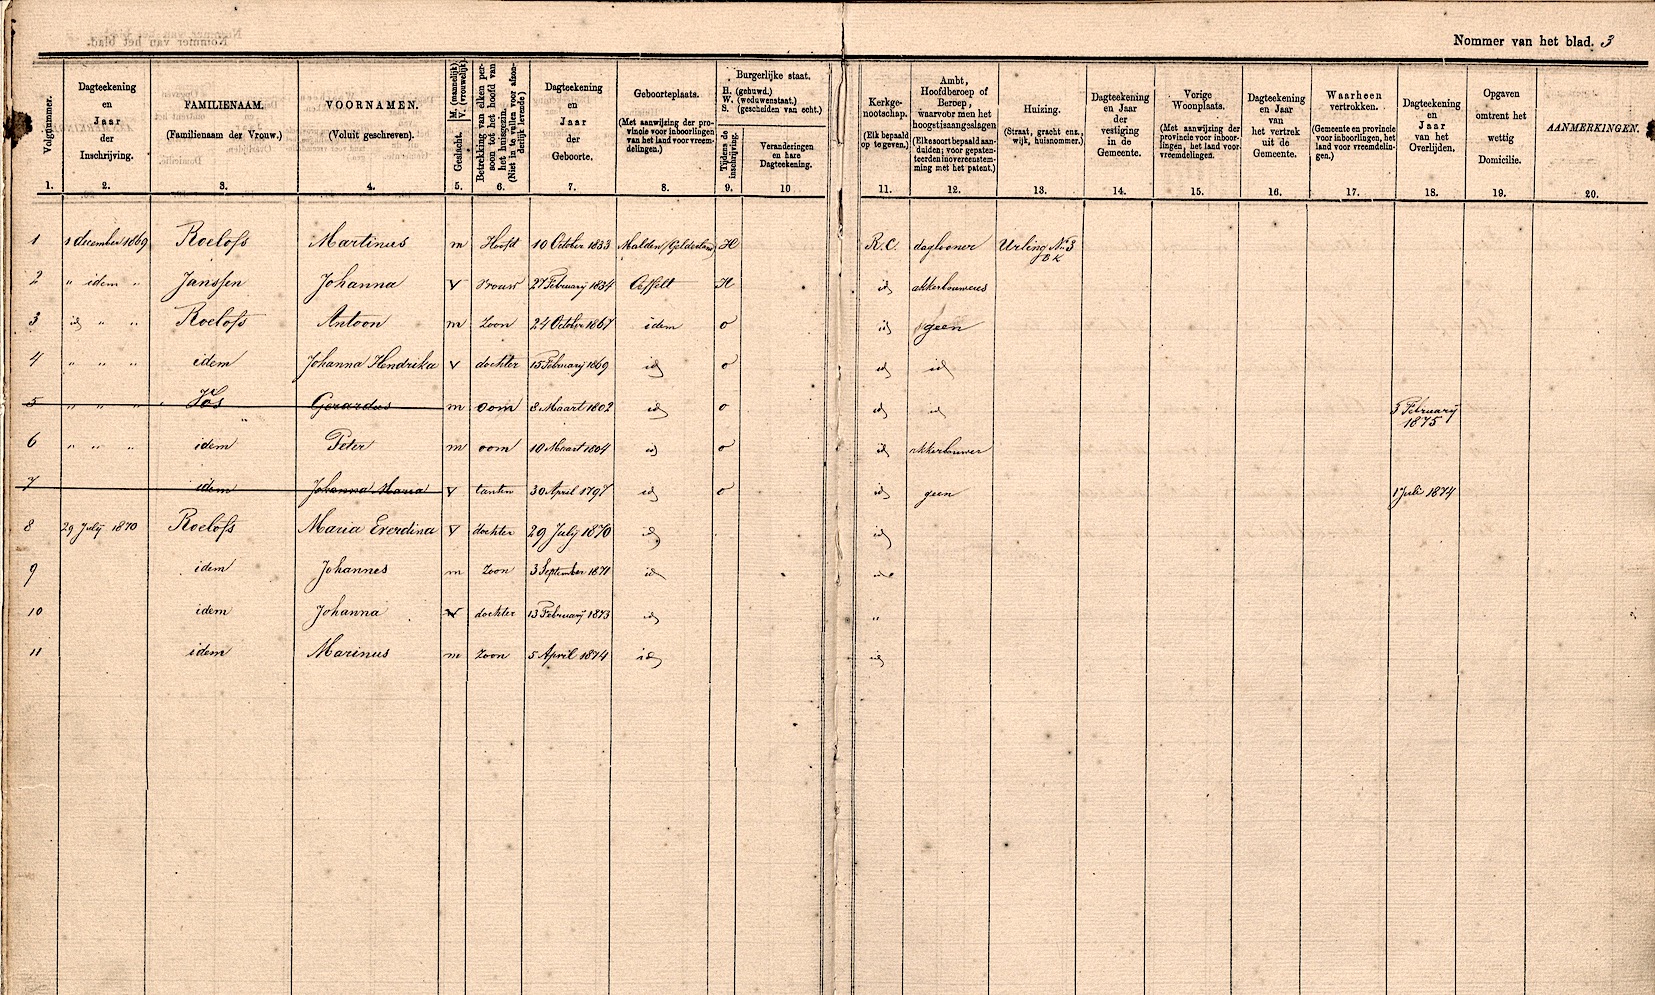 Nommer van het blad. 3
Volgnummer.
Dagteekening
en
Jaar
der
Inschrijving.
FAMILIENAAM.
(Familienaam der Vrouw.)
VOORNAMEN.
(Voluit geschreven).
Geslacht. M. (mannelijk) V. (vrouwelijk).
Betrekking van elken persoon tot het hoofd van het huisgezin. (Niet in te vullen voor afzonderlijk levende)
Dagteekening
en
Jaar
der
Geboorte.
Geboorteplaats.
(Met aanwijzing der pro-
vincie voor inboorlingen
van het land voor vreem-
delingen.)
Burgerlijke staat.
H. (gehuwd.)
W. (weduwenstaat.)
S. (gescheiden van echt.)
Tijdens de inschrijving.
Veranderingen
en hare
Dagteekening.
Kerkge-
nootschap.
(Elk bepaald
op te geven.)
Ambt,
Hoofdberoep of
Beroep,
waarvoor men het
hoogst is aangeslagen
(Elke soort bepaald aan-
duiden; voor gepaten-
teerden in overeenstem-
ming met het patent.)
Huizing.
(Straat, gracht enz.,
wijk, huisnommer.)
Dagteekening
en Jaar
der
vestiging
in de
Gemeente.
Vorige
Woonplaats.
(Met aanwijzing der
provincie voor inboor-
lingen, het land voor
vreemdelingen.)
Dagteekening
en Jaar
van
het vertrek
uit de
Gemeente.
Waarheen
vertrokken.
(Gemeente en provincie
voor inboorlingen, het
land voor vreemdelin-
gen.)
Dagteekening
en
Jaar
van het
Overlijden.
Opgaven
omtrent het
wettig
Domicilie.
AANMERKINGEN.
1. 2. 3. 4. 5. 6. 7. 8. 9. 10 11. 12. 13. 14. 15. 16. 17. 18. 19. 20.
1 1 december 1869 Roelofs Martinus m Hoofd 10 October 1833 Malden (Gelderland) H R.C. daglooner Urling No 3
BK
2 " idem " Janssen Johanna V Vrouw 27 Februarij 1834 Oeffelt H id akkerbouweres
3 id " " Roelofs Antoon m Zoon 24 October 1867 idem o id geen
4 " " " idem Johanna Hendrika V dochter 15 Februarij 1869 id o id id
5 " " " Vos Gerardus m oom 8 Maart 1802 id o id id 5 Februarij
1875
6 " " " idem Peter m oom 10 Maart 1804 id o id akkerbouwer
7 idem Johanna Maria V tante 30 April 1797 id o id geen 1 Juli 1874
8 29 July 1870 Roelofs Maria Everdina V dochter 29 July 1870 id id
9 idem Johannes m Zoon 3 September 1871 id id
10 idem Johanna V dochter 13 Februarij 1873 id "
11 idem Marinus m Zoon 5 April 1874 id id